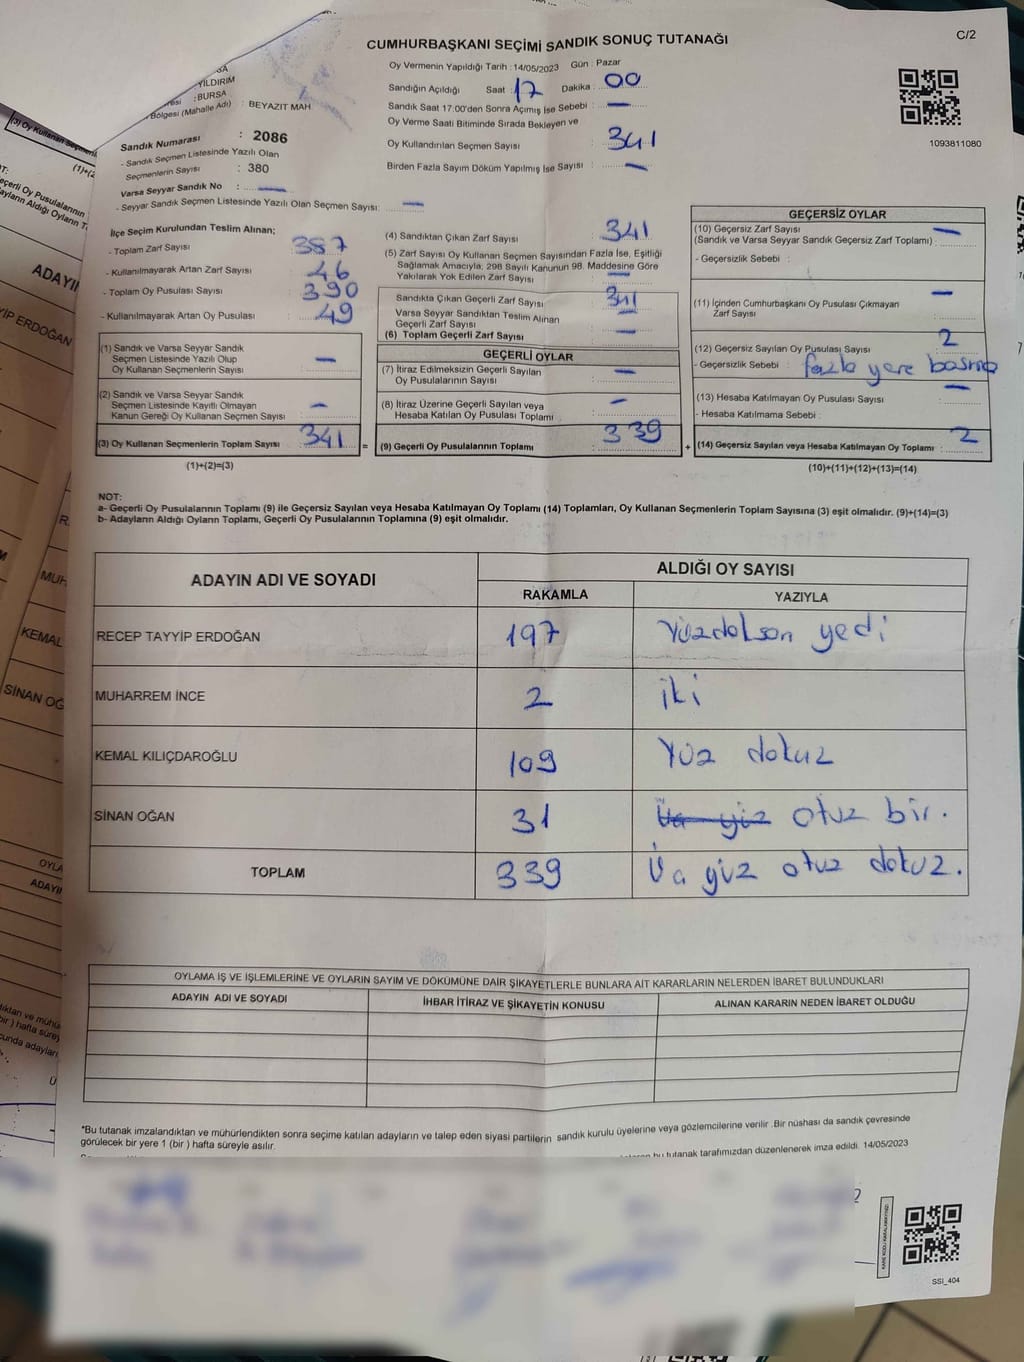 CUMHURBAŞKANI SEÇİMİ SANDIK SONUÇ TUTANAĞI
C/2
Oy Vermenin Yapıldığı Tarih :14/05/2023 Gün : Pazar
YILDIRIM
:BURSA
Bölgesi (Mahalle Adı) : BEYAZIT MAH
Sandığın Açıldığı Saat : 17 Dakika : 00
Sandık Saat 17:00'den Sonra Açımış İse Sebebi : —
Oy Verme Saati Bitiminde Sırada Bekleyen ve
Oy Kullandırılan Seçmen Sayısı : 341
Birden Fazla Sayım Döküm Yapılmış İse Sayısı : —
1093811080
Sandık Numarası : 2086
- Sandık Seçmen Listesinde Yazılı Olan
Seçmenlerin Sayısı : 380
Varsa Seyyar Sandık No : —
- Seyyar Sandık Seçmen Listesinde Yazılı Olan Seçmen Sayısı: —
İlçe Seçim Kurulundan Teslim Alınan;
- Toplam Zarf Sayısı : 387
- Kullanılmayarak Artan Zarf Sayısı : 46
- Toplam Oy Pusulası Sayısı : 390
- Kullanılmayarak Artan Oy Pusulası : 49
(1) Sandık ve Varsa Seyyar Sandık
Seçmen Listesinde Yazılı Olup
Oy Kullanan Seçmenlerin Sayısı : —
(2) Sandık ve Varsa Seyyar Sandık
Seçmen Listesinde Kayıtlı Olmayan
Kanun Gereği Oy Kullanan Seçmen Sayısı : —
(3) Oy Kullanan Seçmenlerin Toplam Sayısı : 341 =
(1)+(2)=(3)
(4) Sandıktan Çıkan Zarf Sayısı : 341
(5) Zarf Sayısı Oy Kullanan Seçmen Sayısından Fazla İse, Eşitliği
Sağlamak Amacıyla; 298 Sayılı Kanunun 98. Maddesine Göre
Yakılarak Yok Edilen Zarf Sayısı : —
Sandıkta Çıkan Geçerli Zarf Sayısı : 341
Varsa Seyyar Sandıktan Teslim Alınan
Geçerli Zarf Sayısı : —
(6) Toplam Geçerli Zarf Sayısı : —
GEÇERLİ OYLAR
(7) İtiraz Edilmeksizin Geçerli Sayılan
Oy Pusulalarının Sayısı : —
(8) İtiraz Üzerine Geçerli Sayılan veya
Hesaba Katılan Oy Pusulası Toplamı : —
(9) Geçerli Oy Pusulalarının Toplamı : 339 +
GEÇERSİZ OYLAR
(10) Geçersiz Zarf Sayısı —
(Sandık ve Varsa Seyyar Sandık Geçersiz Zarf Toplamı) :
- Geçersizlik Sebebi :
(11) İçinden Cumhurbaşkanı Oy Pusulası Çıkmayan —
Zarf Sayısı :
(12) Geçersiz Sayılan Oy Pusulası Sayısı : 2
- Geçersizlik Sebebi : fazla yere basma
(13) Hesaba Katılmayan Oy Pusulası Sayısı : —
- Hesaba Katılmama Sebebi :
(14) Geçersiz Sayılan veya Hesaba Katılmayan Oy Toplamı : 2
(10)+(11)+(12)+(13)=(14)
NOT:
a- Geçerli Oy Pusulalarının Toplamı (9) ile Geçersiz Sayılan veya Hesaba Katılmayan Oy Toplamı (14) Toplamları, Oy Kullanan Seçmenlerin Toplam Sayısına (3) eşit olmalıdır. (9)+(14)=(3)
b- Adayların Aldığı Oyların Toplamı, Geçerli Oy Pusulalarının Toplamına (9) eşit olmalıdır.
ADAYIN ADI VE SOYADI
ALDIĞI OY SAYISI
RAKAMLA YAZIYLA
RECEP TAYYİP ERDOĞAN 197 Yüzdolson yedi
MUHARREM İNCE 2 iki
KEMAL KILIÇDAROĞLU 109 Yüz dokuz
SİNAN OĞAN 31 otuz bir.
TOPLAM 339 yüz otuz dokuz.
OYLAMA İŞ VE İŞLEMLERİNE VE OYLARIN SAYIM VE DÖKÜMÜNE DAİR ŞİKAYETLERLE BUNLARA AİT KARARLARIN NELERDEN İBARET BULUNDUKLARI
ADAYIN ADI VE SOYADI İHBAR İTİRAZ VE ŞİKAYETİN KONUSU ALINAN KARARIN NEDEN İBARET OLDUĞU
*Bu tutanak imzalandıktan ve mühürlendikten sonra seçime katılan adayların ve talep eden siyasi partilerin sandık kurulu üyelerine veya gözlemcilerine verilir .Bir nüshası da sandık çevresinde
görülecek bir yere 1 (bir ) hafta süreyle asılır.
bu tutanak tarafımızdan düzenlenerek imza edildi. 14/05/2023
SSİ_404